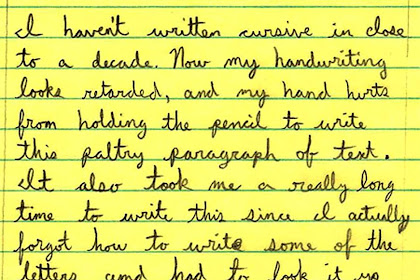 I haven't written cursive in close
to a decade. Now my handwriting
looks retarded, and my hand hurts
from holding the pencil to write
this paltry paragraph of text.
It also took me a really long
time to write this since I actually
forgot how to write some of the
letters and had to look it up